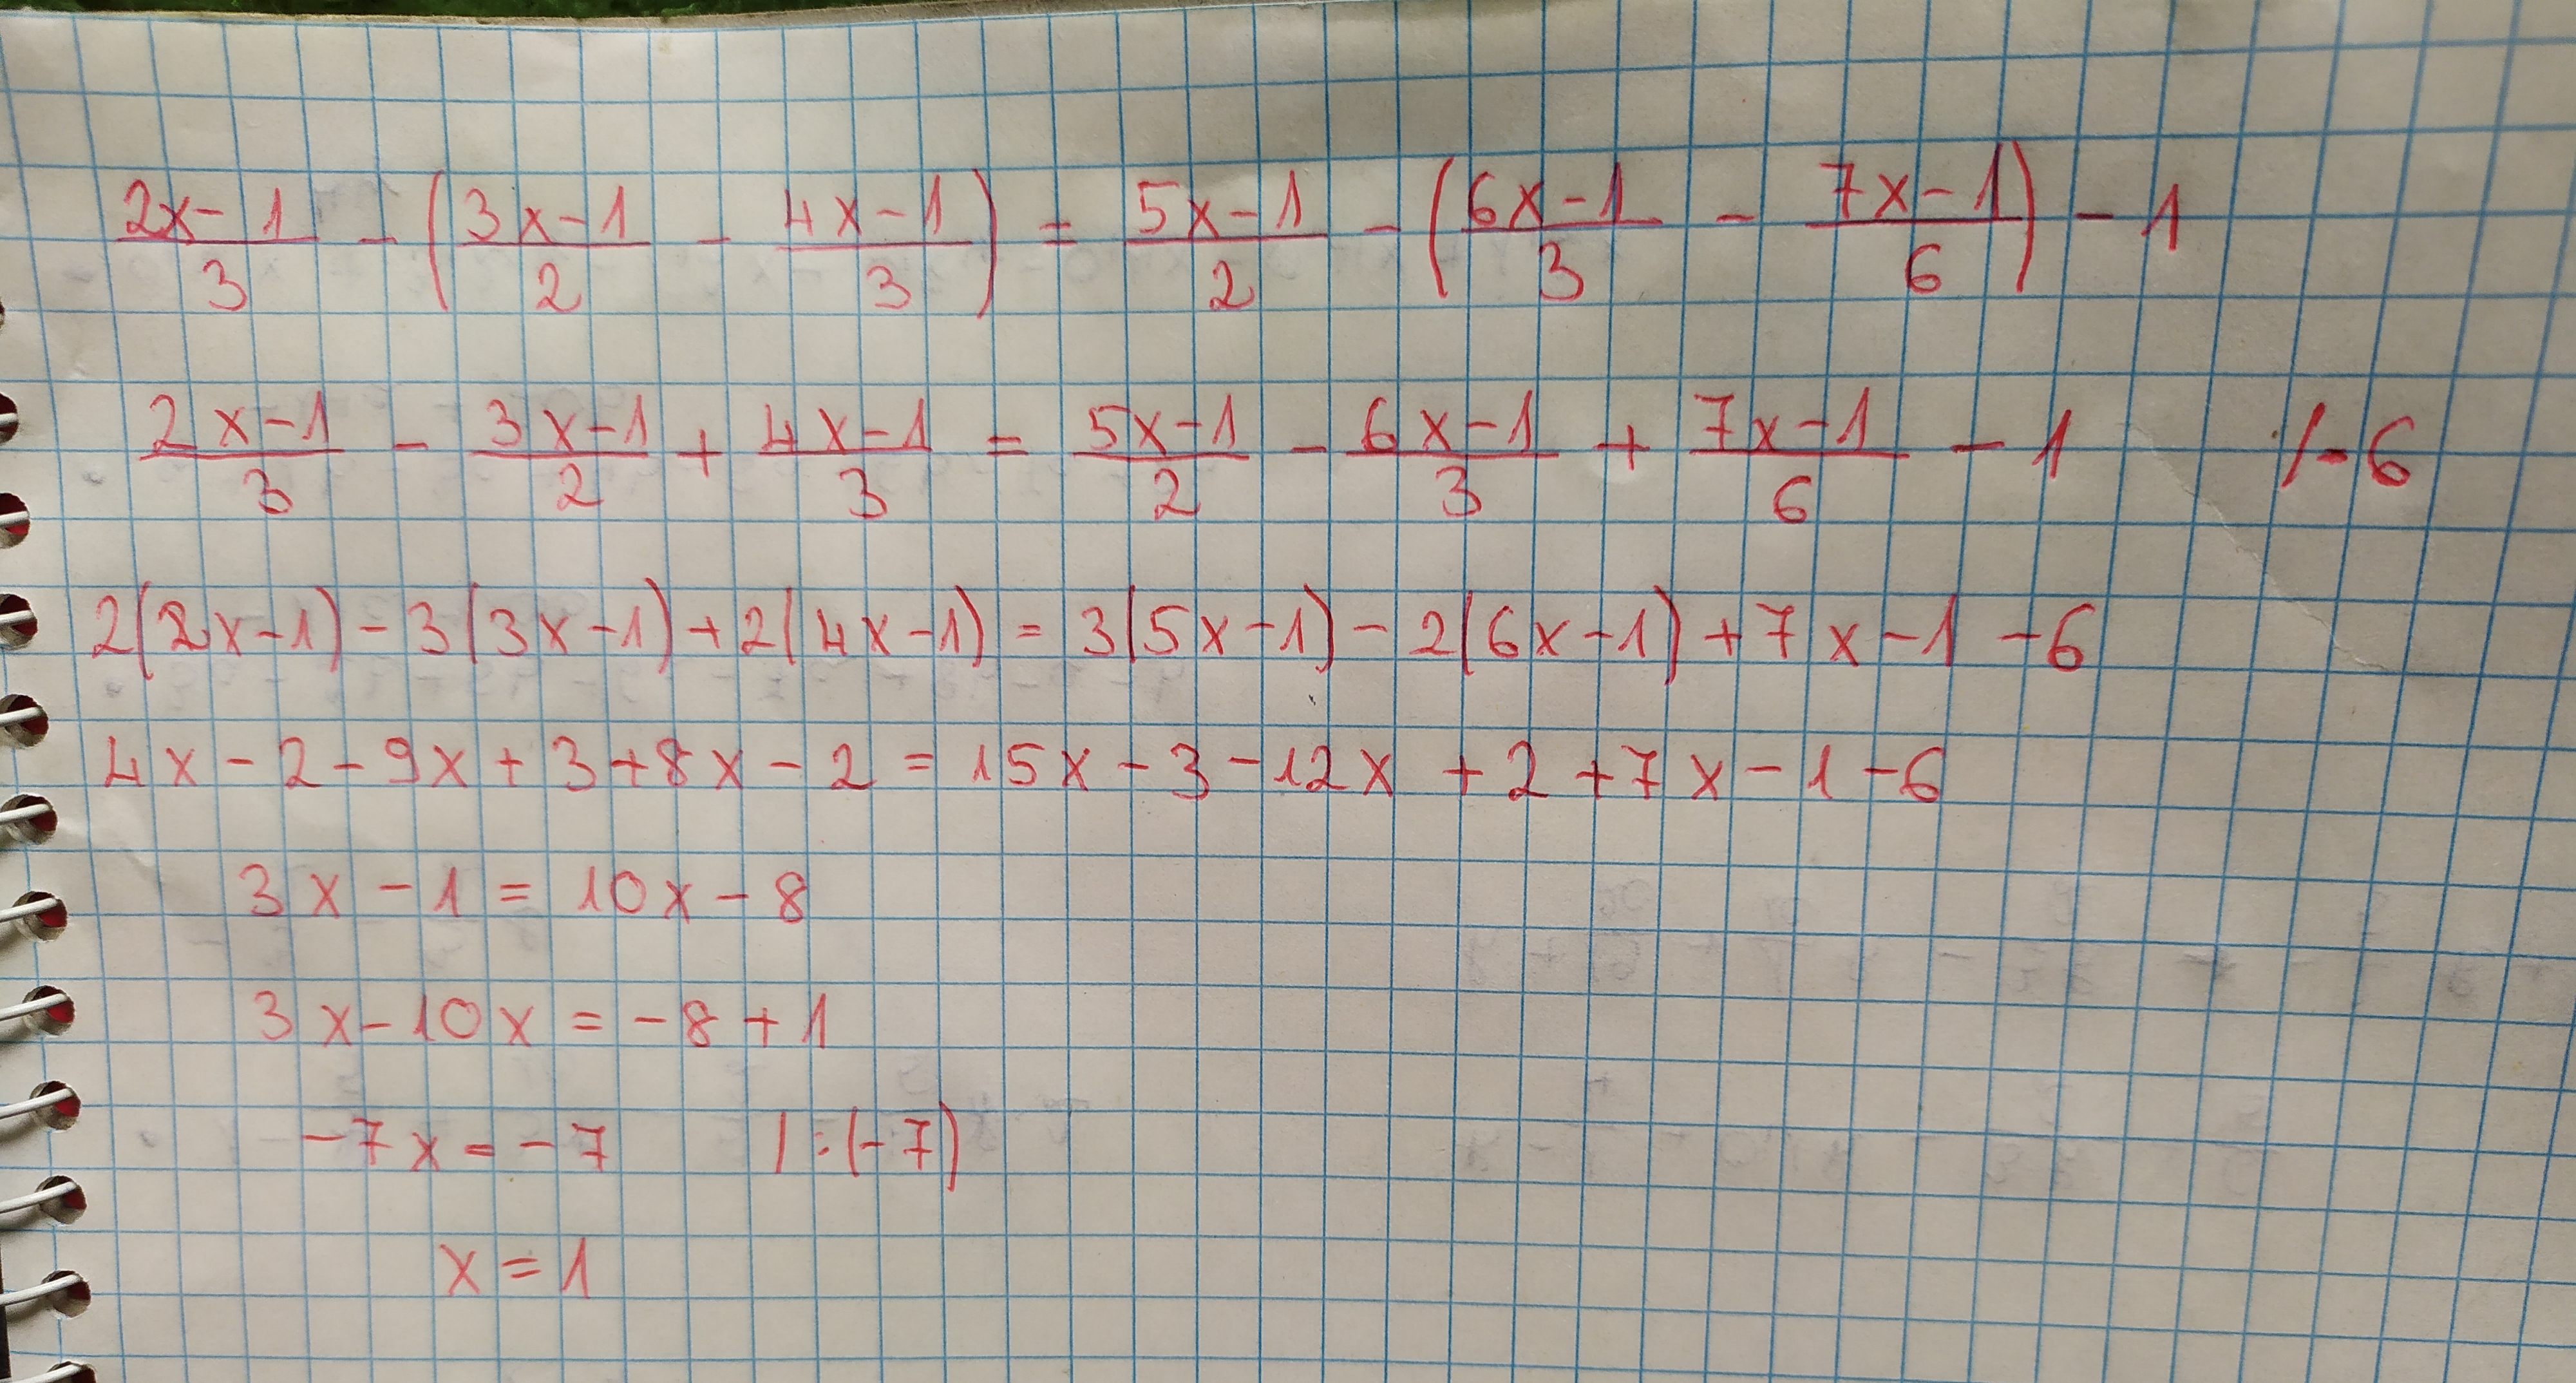 (2x-1)/3 - ((3x-1)/2 - (4x-1)/3) = (5x-1)/2 - ((6x-1)/3 - (7x-1)/6) - 1
(2x-1)/3 - (3x-1)/2 + (4x-1)/3 = (5x-1)/2 - (6x-1)/3 + (7x-1)/6 - 1 /·6
2(2x-1)-3(3x-1)+2(4x-1)=3(5x-1)-2(6x-1)+7x-1-6
4x-2-9x+3+8x-2=15x-3-12x+2+7x-1-6
3x-1=10x-8
3x-10x=-8+1
-7x=-7 |:(-7)
x=1